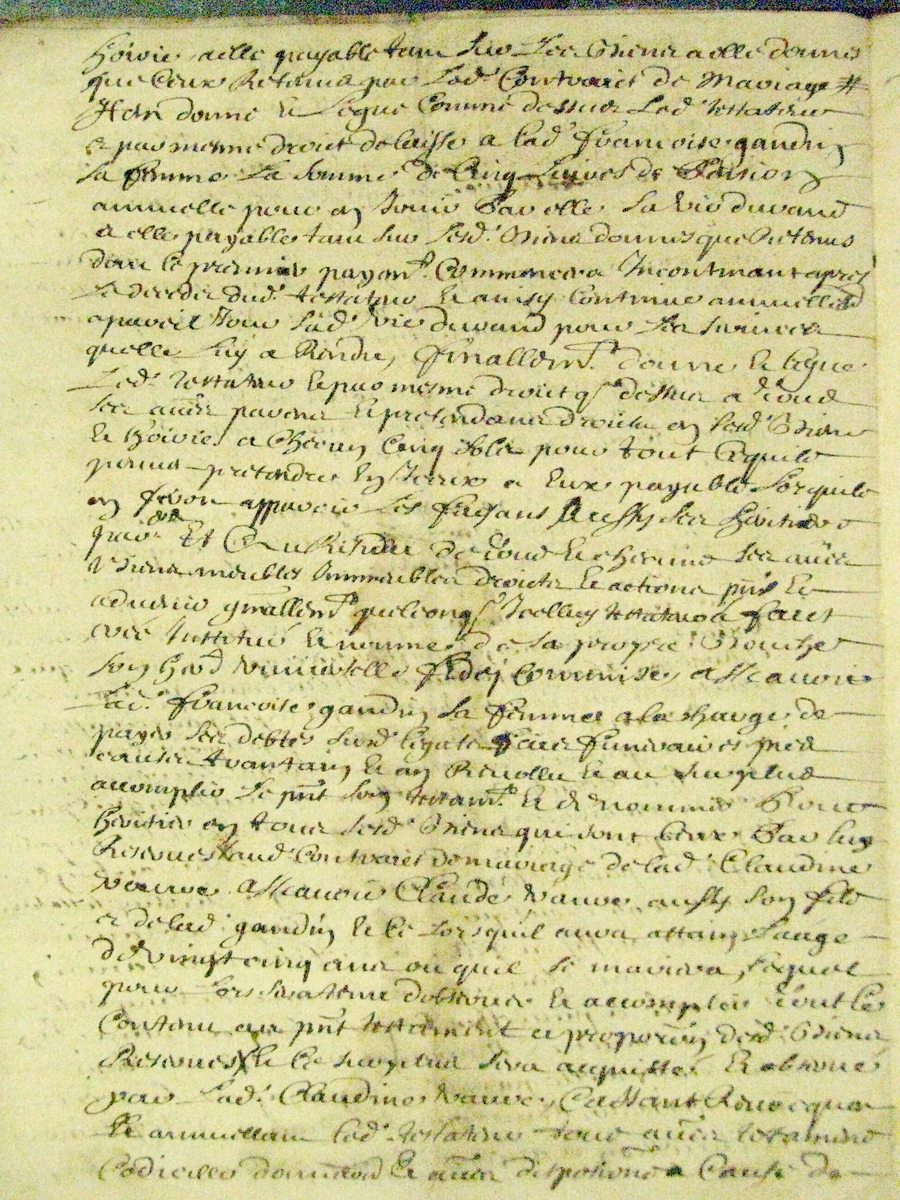 hoirie a elle payable tant sur ses biens a elle donnes
que ceux Retenus par led. Contraict de Mariage #
Item donne & legue Comme dessus led. testateur
& par mesme droict delaisse a lad. francoise gaudin
sa femme la somme de Cinq Livres de Pension
annuelle pour en Jouir Par elle sa vie durand
a elle payable tant sur sesd. biens donnes que Retenus
dont le premier payem.t Commencera Incontinant apres
le decedz dud. testateur & ainsy Continue annuellem.t
apareil Jour sad. vie durand pour les services
quelle luy a Rendu, finallem.t donne & legue
led. testateur & par mesme droict q. dessus a tous
ses au.es parens & pretendans droicts en sesd. biens
& hoirie a Chacun Cinq solz pour tout ce quils
pourra pretendre en Iceux a Eux payable lorsquils
en feront apparoir les faisant aussy ses heritiers
Et Du Residu de tous & chacuns ses au.es
biens meubles Immeubles droicts & actions p.nts &
aduenir g.nallem.t quelconq. Icelluy testateur a faict
cree Institue & nomme de sa propre bouche
son her. universelle fidey commise asscavoir
lad. francoise gaudin sa femme a la charge de
payer ses debtes susd. legats frais funeraires pies
causes Avantant & en Revollu & au surplus
accomplir le p.nt son testam.t & denomme Pour
heritier en tous sesd. biens qui sont Ceux Par luy
Reserves aud. Contraict de mariage de lad. Claudine
vauve asscavoir Claude vauve aussy son fils
& de lad. gaudin & ce lorsquil aura attang Laage
de vingt cinq ans ou quil se mariera, lequel
pour lors sera tenu dobserver & accomplir tout le
Contenu au p.nt testament a proportion desd. biens
Reserves & le surplus sera acquitte & observe
par lad. Claudine vauve, Cassant Revocquant
& annullant led. testateur tous au.es testamens
Codicilles donnations & au.es dispositions a Cause de